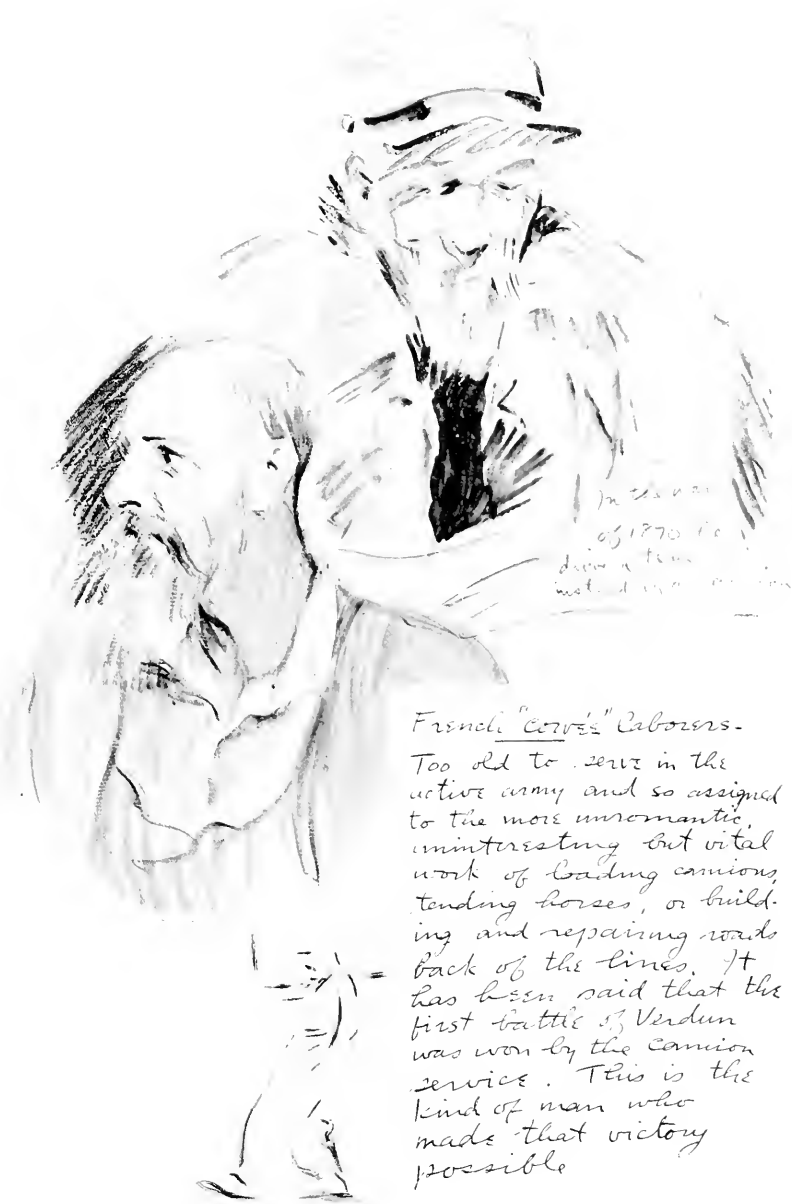 In the war
of 1870 he
drove a team
instead of a camion
French "corvée" Laborers-
Too old to serve in the
active army and so assigned
to the more unromantic,
uninteresting but vital
work of loading camions,
tending horses, or build-
ing and repairing roads
back of the lines. It
has been said that the
first battle of Verdun
was won by the camion
service. This is the
kind of man who
made that victory
possible